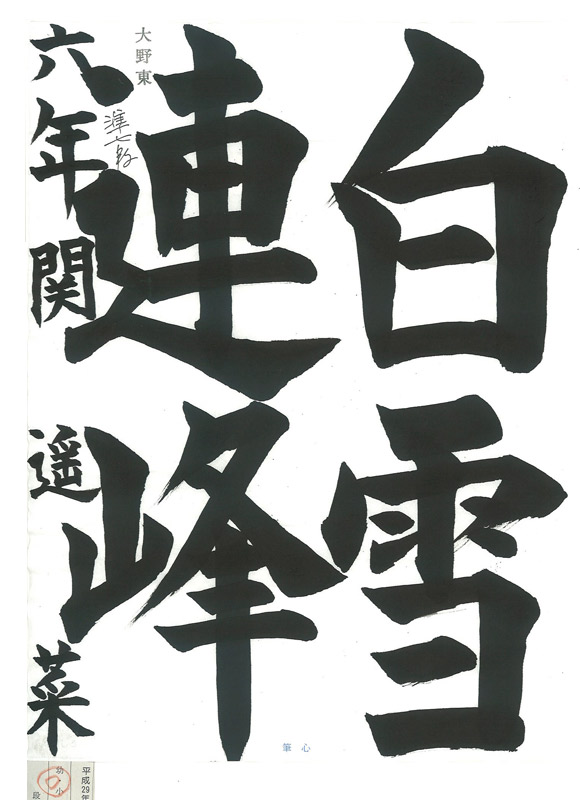 白雪
連峰
大野東
準七段
六年 関 遥菜
心筆
平成29年
幼・小
段